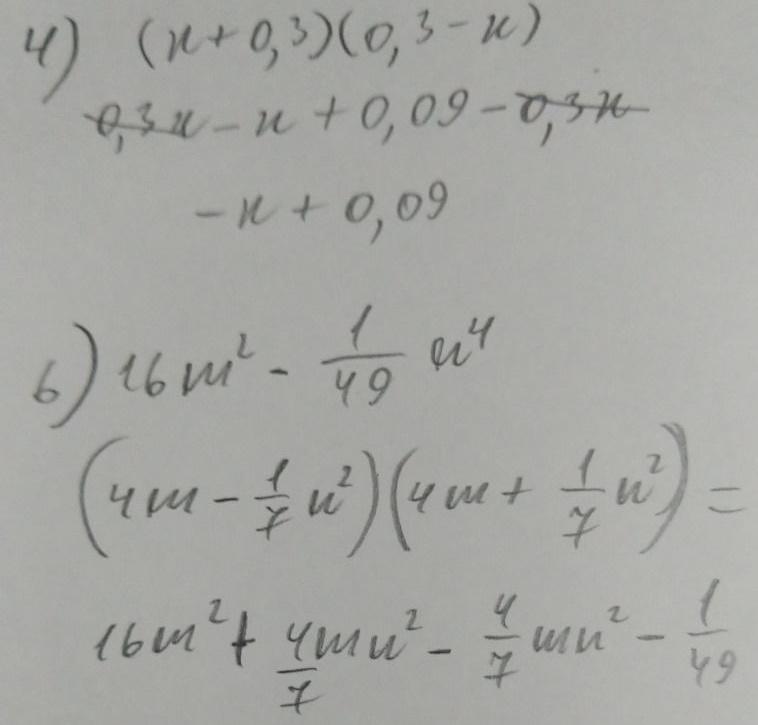 4) (x+0,3)(0,3-x)
0,3x - x + 0,09 - 0,3x
- x + 0,09
6) 16m² - 1/49 n⁴
(4m - 1/7 n²)(4m + 1/7 n²) =
16m² + 4/7 mn² - 4/7 mn² - 1/49